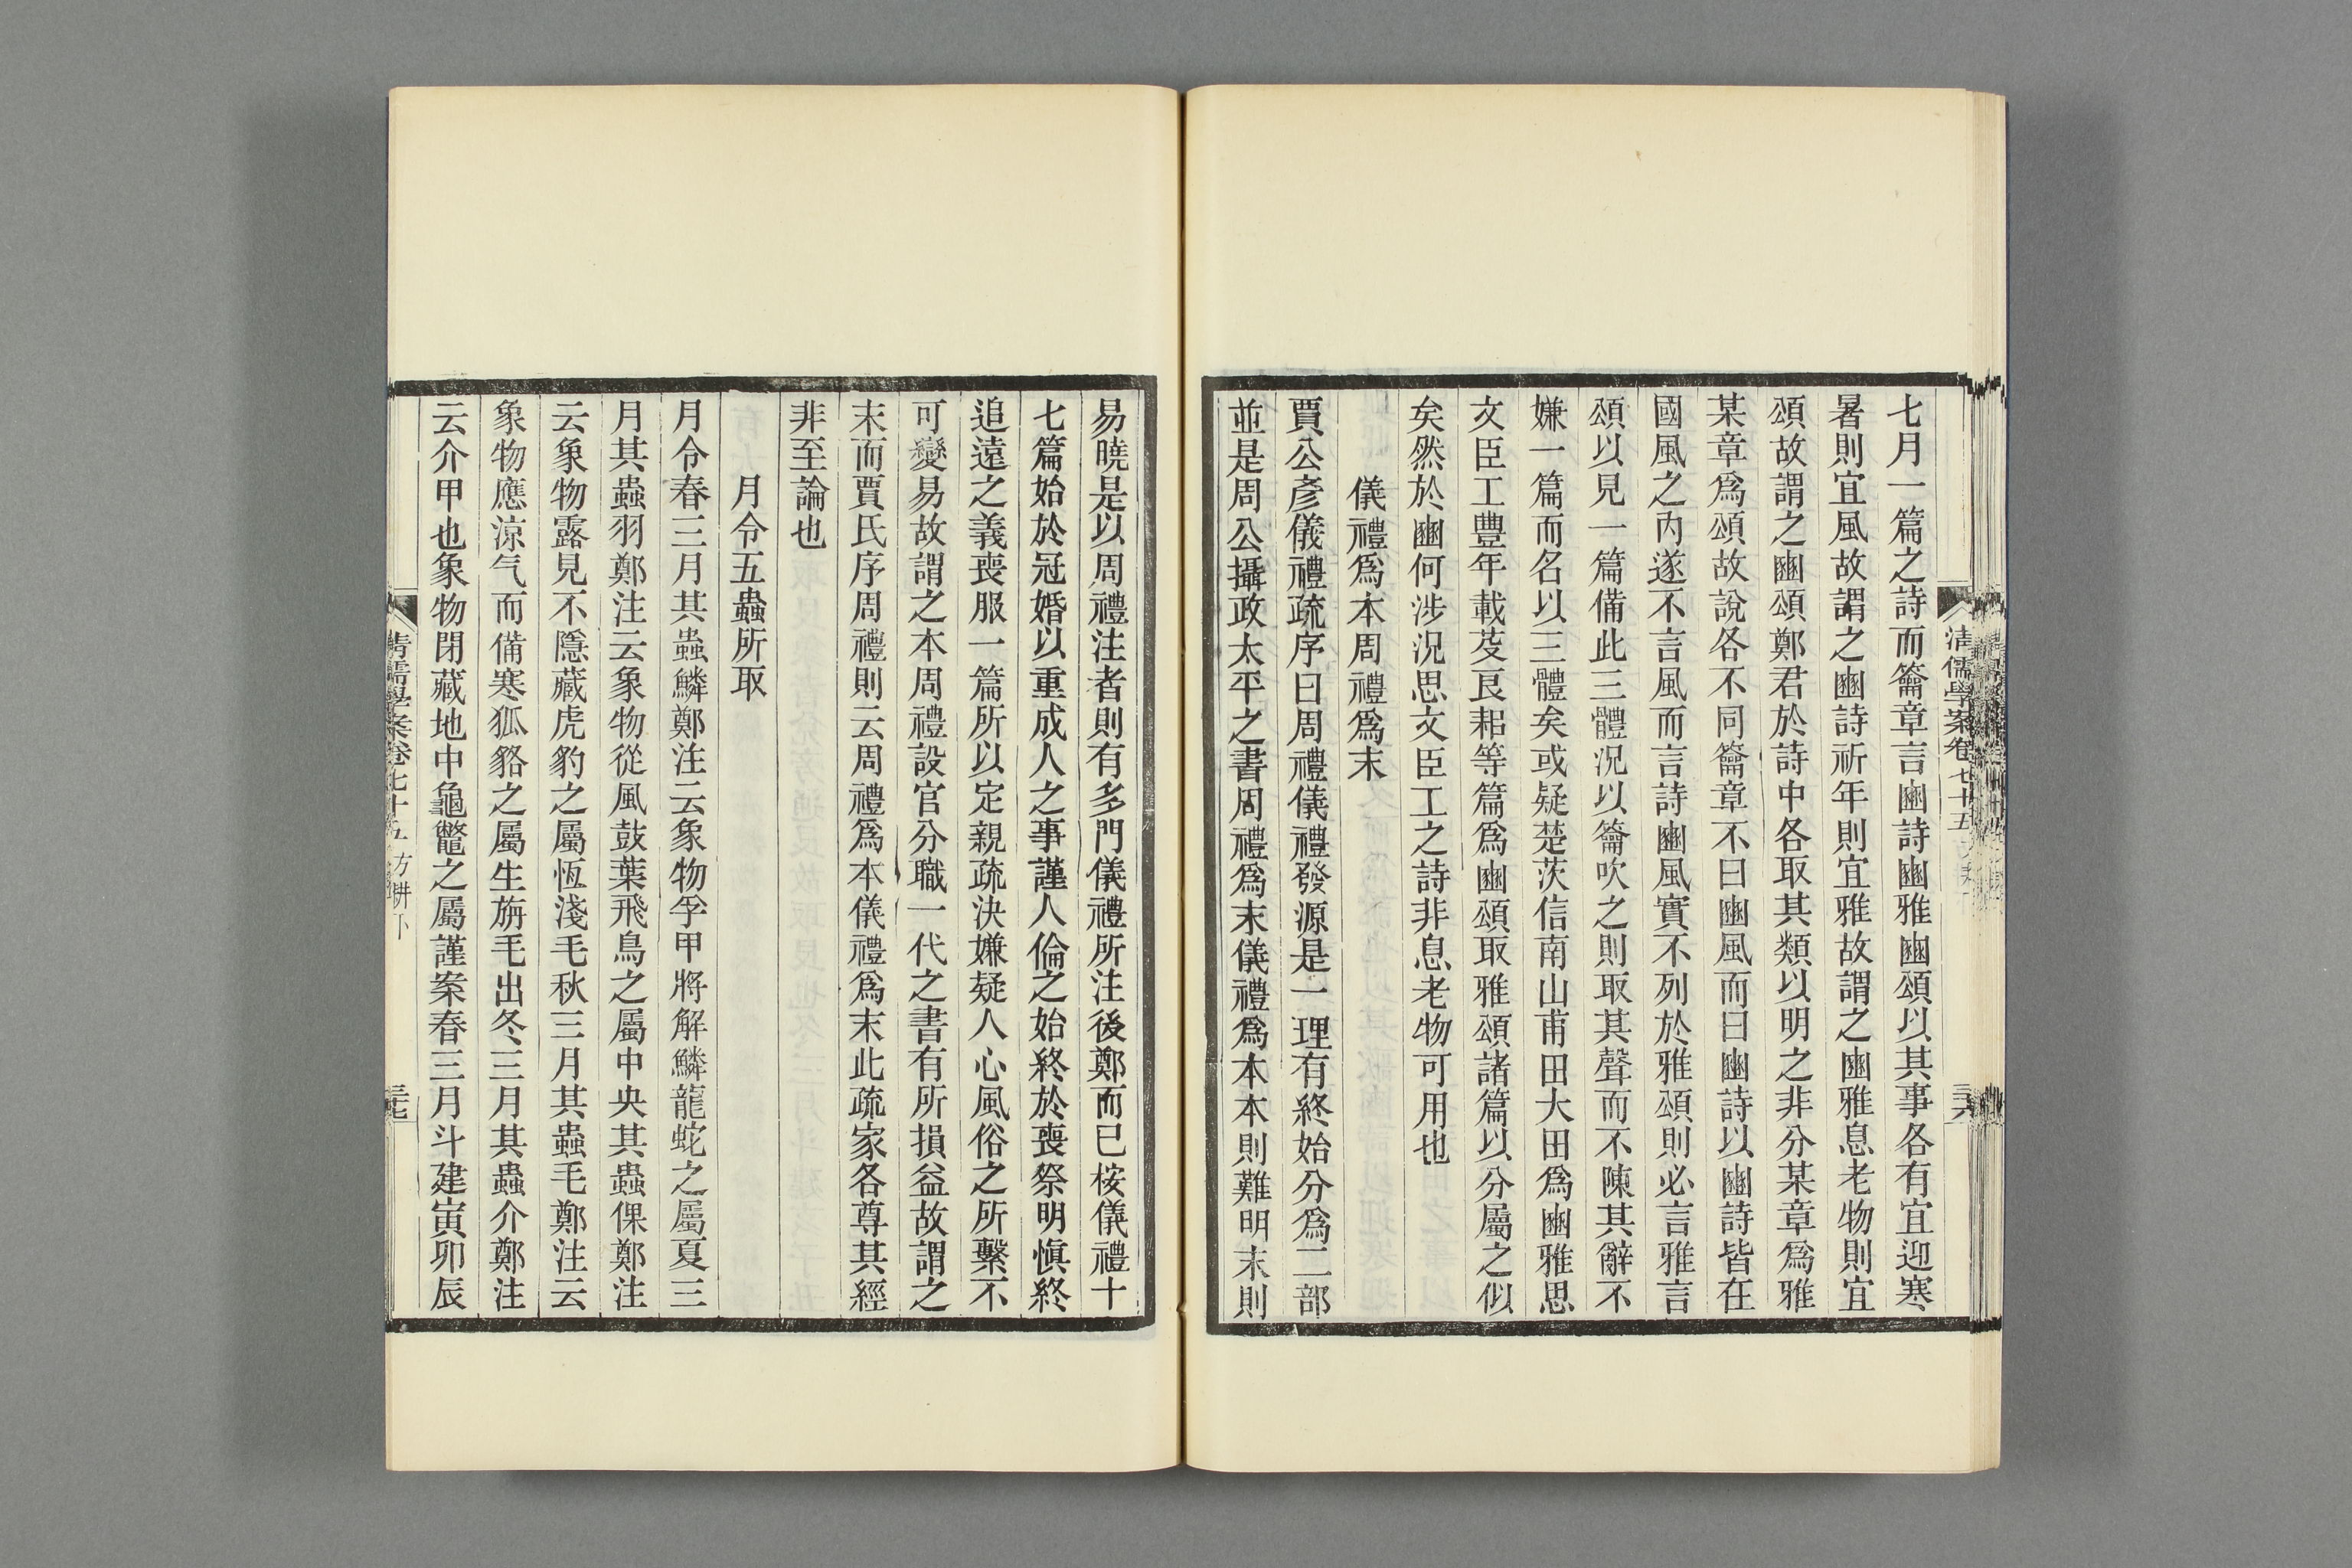 清儒學案卷七十五
三十六
七月一篇之詩而籥章言豳詩豳雅豳頌以其事各有宜迎寒
暑則宜風故謂之豳詩祈年則宜雅故謂之豳雅息老物則宜
頌故謂之豳頌鄭君於詩中各取其類以明之非分某章爲雅
某章爲頌故說各不同籥章不曰豳風而曰豳詩以豳詩皆在
國風之內遂不言風而言詩豳風實不列於雅頌則必言雅言
頌以見一篇備此三體況以籥吹之則取其聲而不陳其辭不
嫌一篇而名以三體矣或疑楚茨信南山甫田大田爲豳雅思
文臣工豐年載芟良耜等篇爲豳頌取雅頌諸篇以分屬之似
矣然於豳何涉況思文臣工之詩非息老物可用也
儀禮爲本周禮爲末
賈公彥儀禮疏序曰周禮儀禮發源是一理有終始分爲二部
並是周公攝政太平之書周禮爲末儀禮爲本本則難明末則
易曉是以周禮注者則有多門儀禮所注後鄭而已桉儀禮十
七篇始於冠婚以重成人之事謹人倫之始終於喪祭明愼終
追遠之義喪服一篇所以定親疏決嫌疑人心風俗之所繫不
可變易故謂之本周禮設官分職一代之書有所損益故謂之
末而賈氏序周禮則云周禮爲本儀禮爲末此疏家各尊其經
非至論也
月令五蟲所取
月令春三月其蟲鱗鄭注云象物孚甲將解鱗龍蛇之屬夏三
月其蟲羽鄭注云象物從風鼓葉飛鳥之屬中央其蟲倮鄭注
云象物露見不隱藏虎豹之屬恆淺毛秋三月其蟲毛鄭注云
象物應涼气而備寒狐貉之屬生旃毛出冬三月其蟲介鄭注
云介甲也象物閉藏地中龜鼈之屬謹案春三月斗建寅卯辰
清儒學案卷七十五 方耕下
三十七